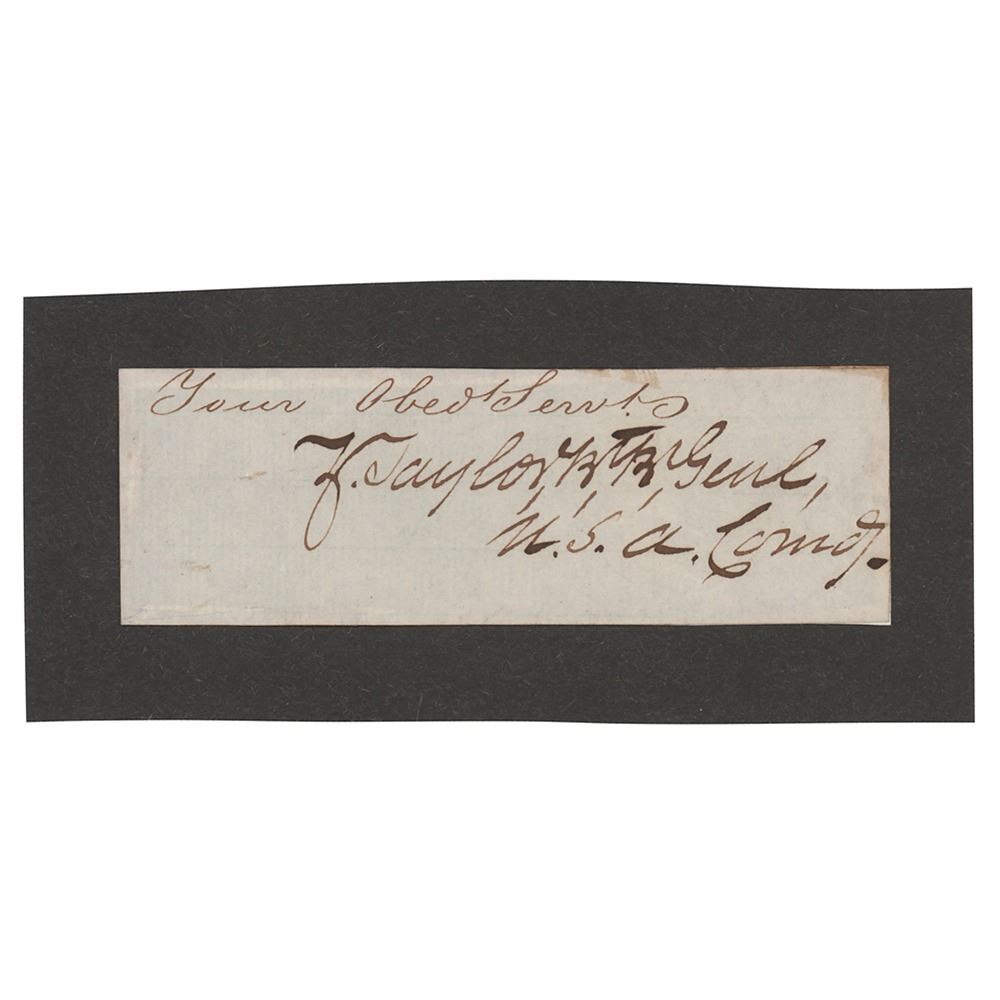 Your Obedt Servt.
Z. Taylor, Bt. Br. Genl,
U.S.A. Comdg.